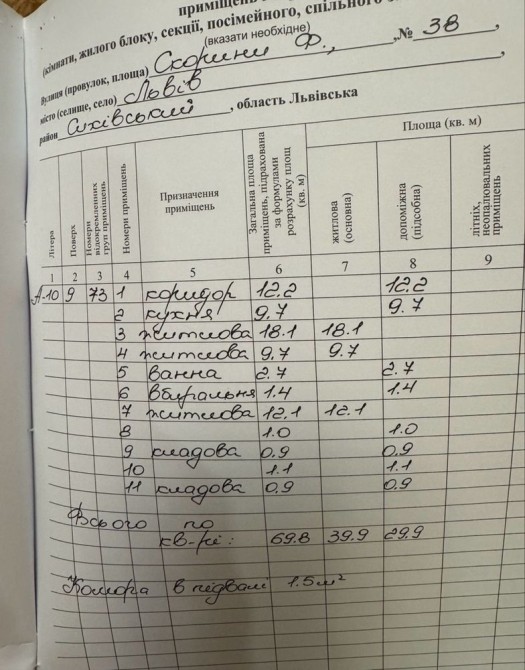 приміщень
(кімнати, жилого блоку, секції, посімейного, спільного
(вказати необхідне)
Вулиця (провулок, площа) Скорини Ф., ,№ 38 ,
місто (селище, село) Львів ,
район Сихівський , область Львівська
Літера
Поверх
Номери відокремлених груп приміщень
Номери приміщень
Призначення приміщень
Загальна площа приміщень, підрахована за формулами розрахунку площ (кв. м)
Площа (кв. м)
житлова (основна)
допоміжна (підсобна)
літніх, неопалювальних приміщень
1 2 3 4 5 6 7 8 9
А-10 9 73 1 коридор 12.2 12.2
2 кухня 9.7 9.7
3 житлова 18.1 18.1
4 житлова 9.7 9.7
5 ванна 2.7 2.7
6 вбиральня 1.4 1.4
7 житлова 12.1 12.1
8 1.0 1.0
9 кладова 0.9 0.9
10 1.1 1.1
11 кладова 0.9 0.9
Всього по
кв-рі: 69.8 39.9 29.9
Комора в підвалі 1.5м²